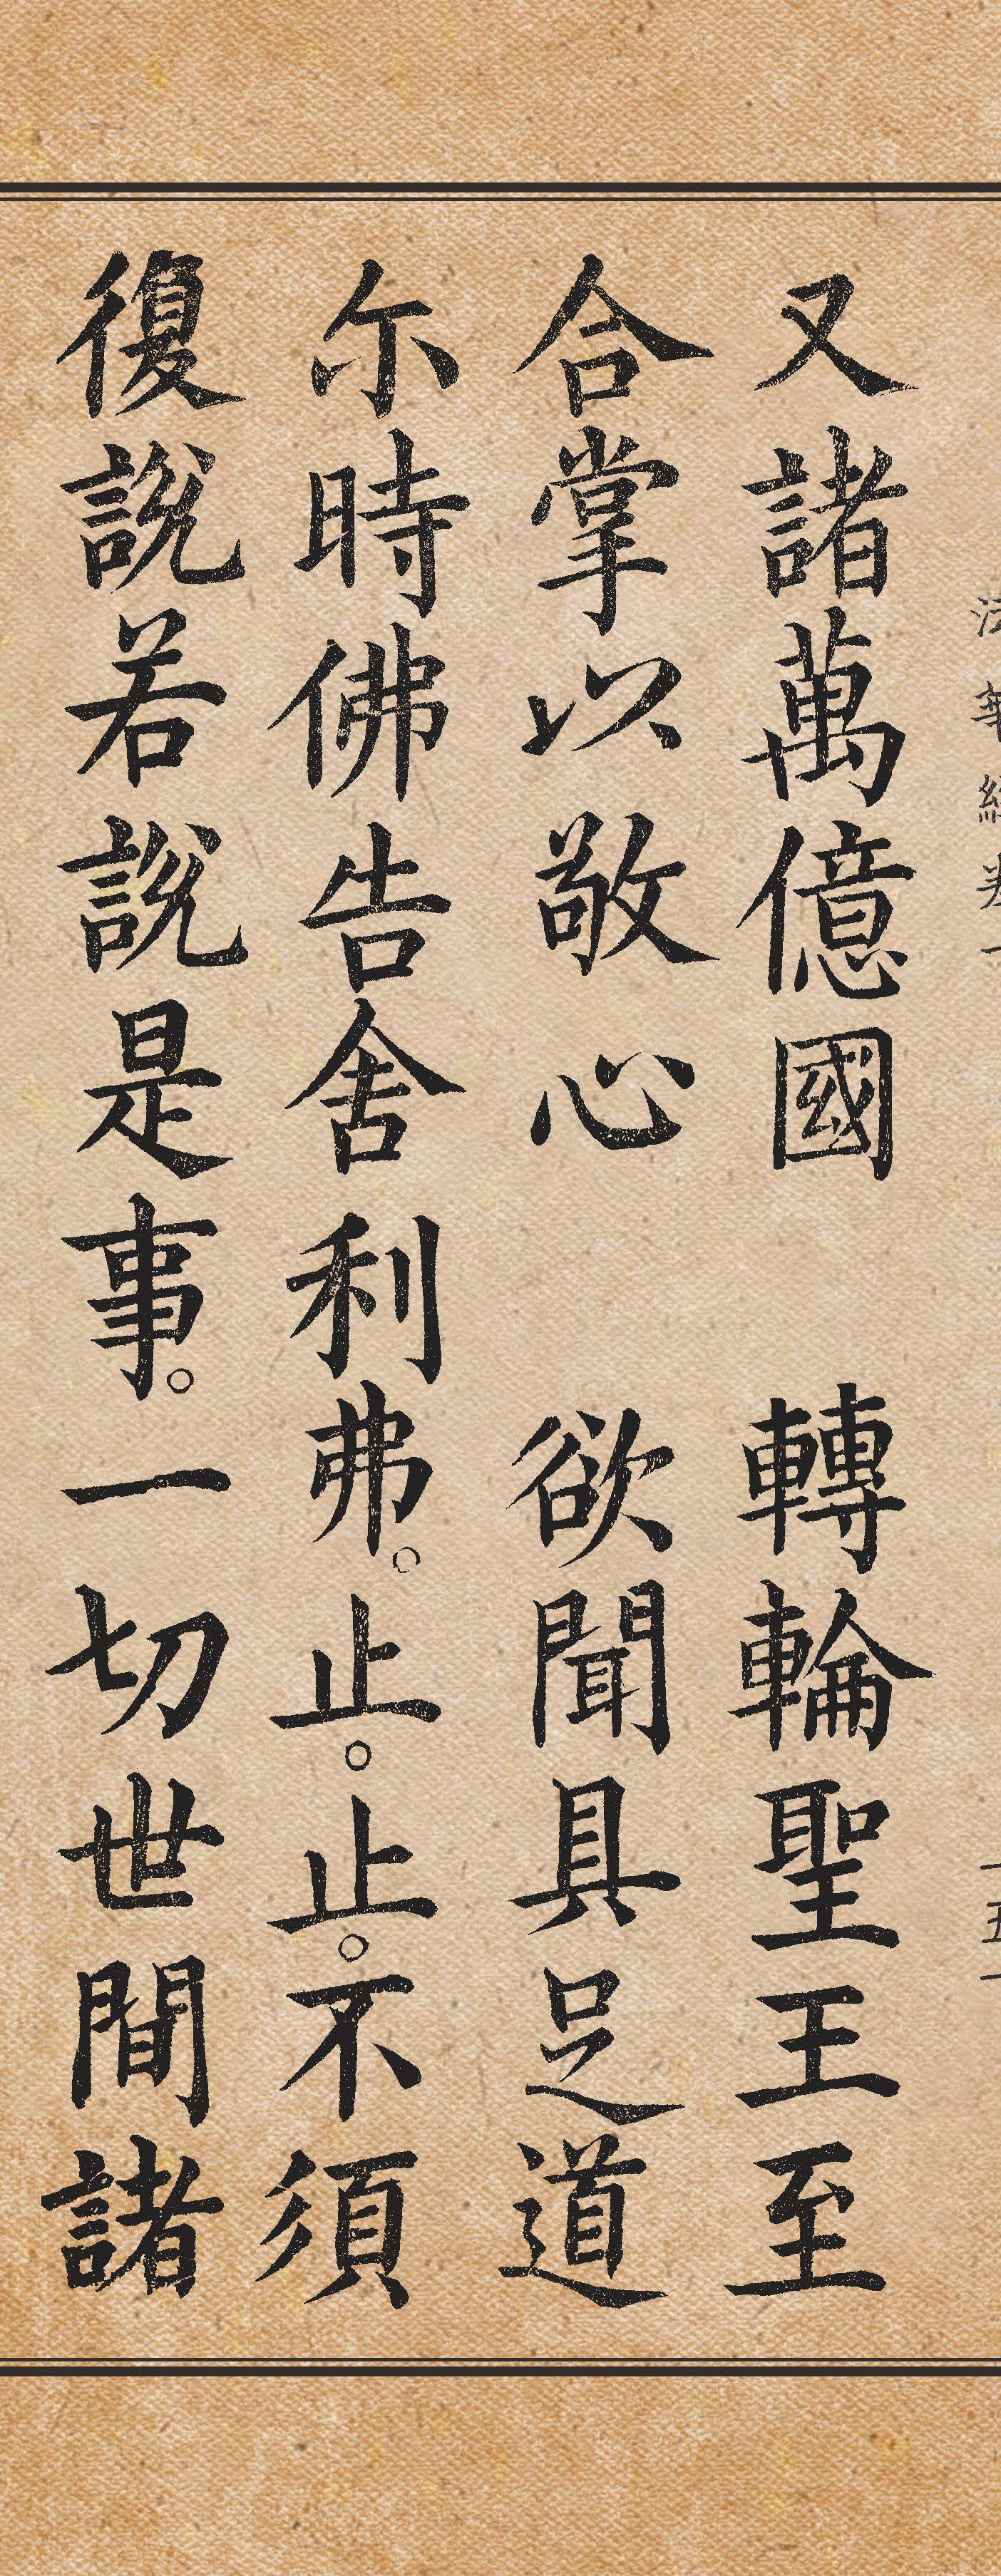 法華經卷一
一五一
又諸萬億國　轉輪聖王至
合掌以敬心　欲聞具足道
尒時佛告舍利弗。止。止。不須
復說若說是事。一切世間諸